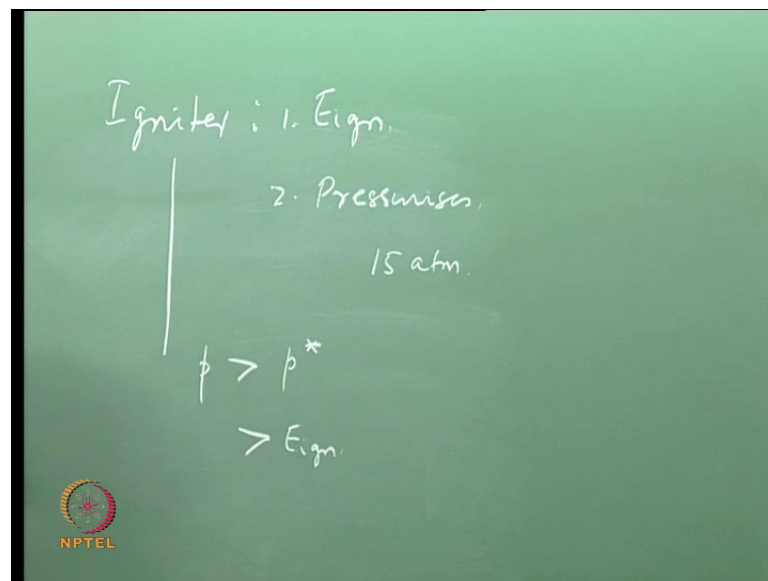 Igniter : 1. Eign.
2. Pressurises.
15 atm.
p > p*
> Eign.
NPTEL